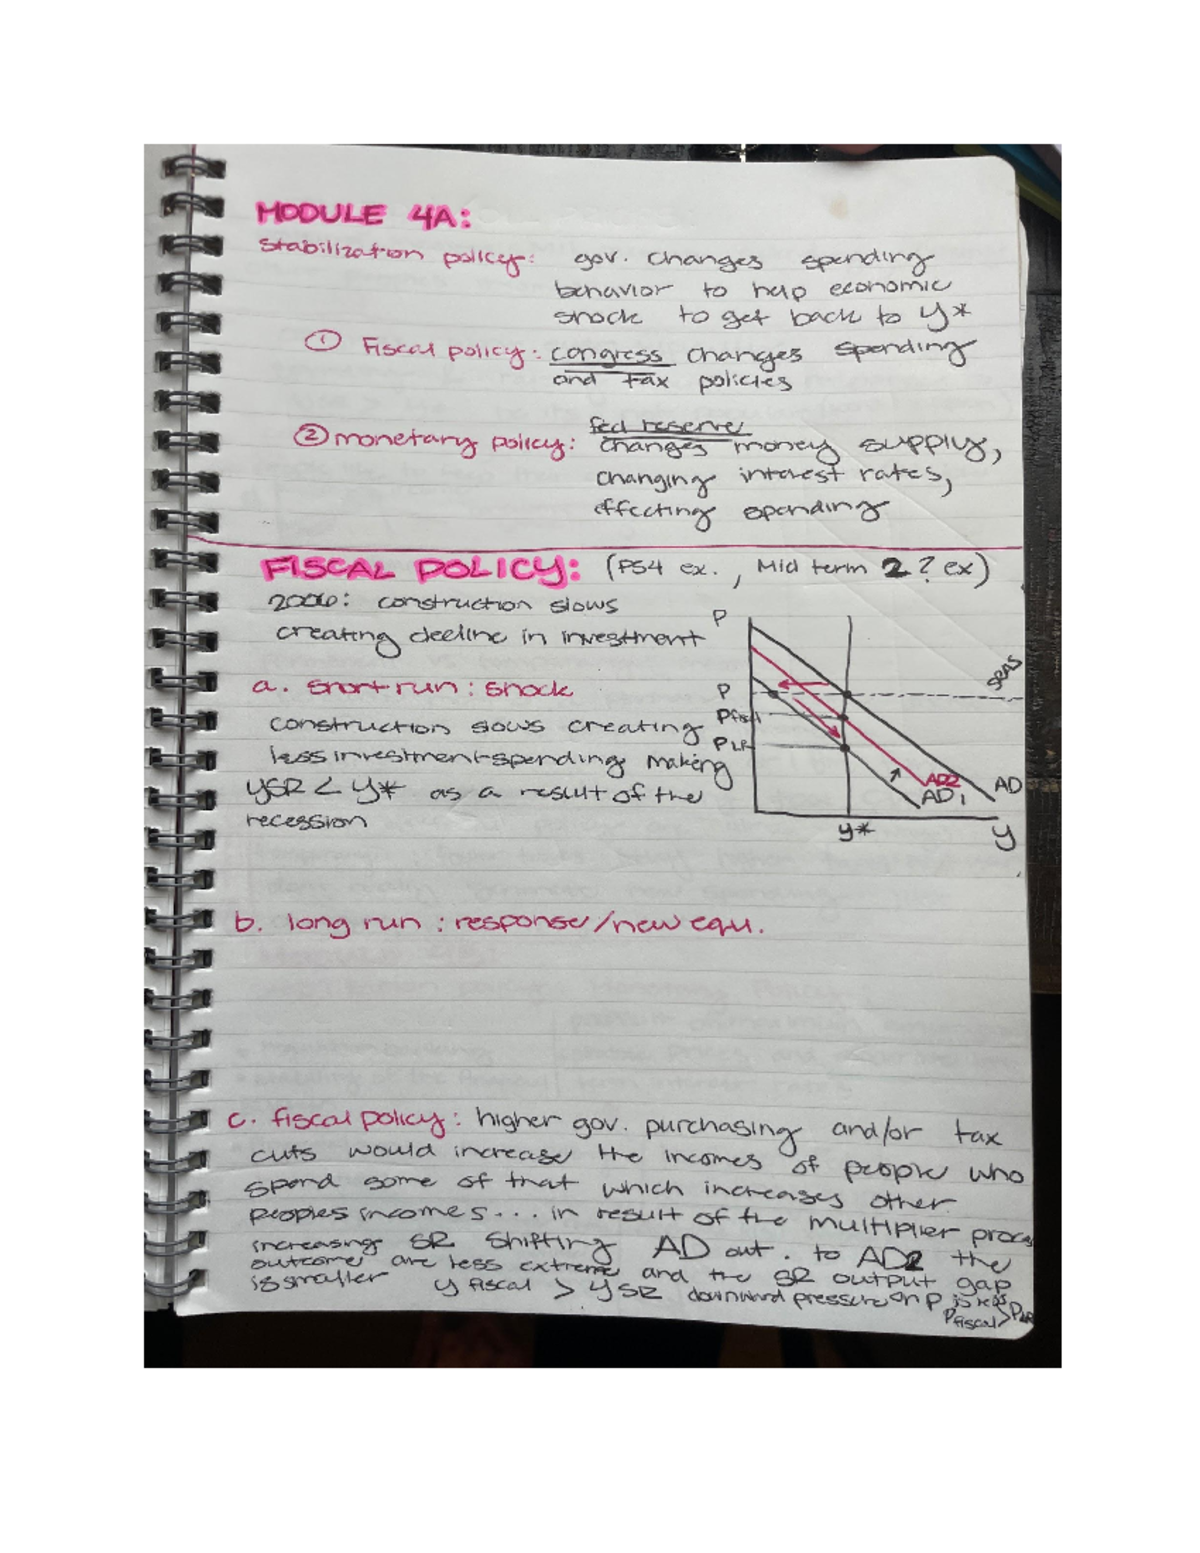 MODULE 4A:
Stabilization policy: gov. changes spending
behavior to help economic
shock to get back to y*
① Fiscal policy: congress changes spending
and tax policies
fed reserve
② monetary policy: changes money supply,
changing interest rates,
effecting spending
FISCAL POLICY: (PS4 ex., Mid term 2? ex)
2006: construction slows
creating decline in investment
a. short run: shock
construction slows creating
less investment spending making
YSR < Y* as a result of the
recession
P
P
Pfiscal
PLR
SRAS
AD2
AD1
AD
y*
y
b. long run: response/new equ.
c. fiscal policy: higher gov. purchasing and/or tax
cuts would increase the incomes of people who
spend some of that which increases other
peoples incomes... in result of the multiplier
increasing SR shifting AD out. to AD2 the
outcome are less extreme and the SR output gap
is smaller y fiscal > YSR downward pressure on P is less
Pfiscal > PLR